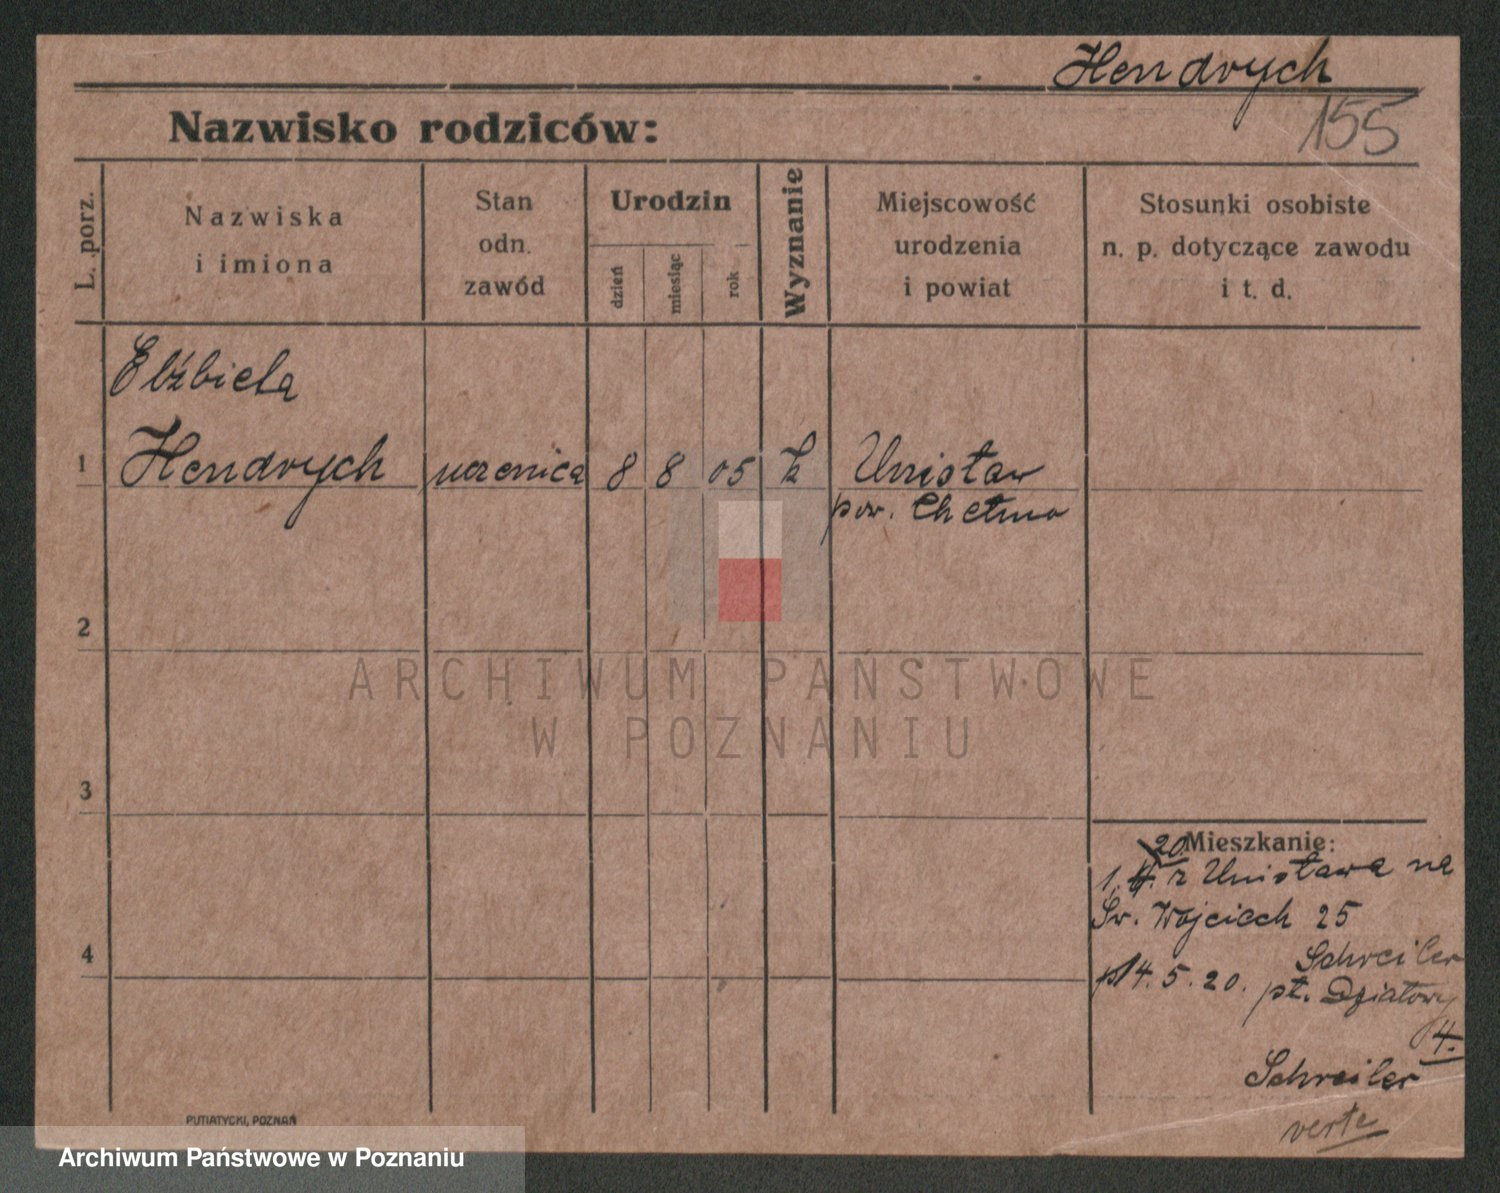 Hendrych
155
Nazwisko rodziców:
L. porz.
Nazwiska
i imiona
Stan
odn.
zawód
Urodzin
dzień
miesiąc
rok
Wyznanie
Miejscowość
urodzenia
i powiat
Stosunki osobiste
n. p. dotyczące zawodu
i t. d.
Elżbieta
1 Hendrych uczenica 8 8 05 k Unisław
pow. Chełmno
2
ARCHIWUM PAŃSTWOWE
W POZNANIU
3
Mieszkanie:
20
1. 4. z Unisława na
Św. Wojciech 25
Schreiler
4
14.5.20. pl. Działowy
4.
Schreiler
verte
PUTIATYCKI, POZNAŃ
Archiwum Państwowe w Poznaniu